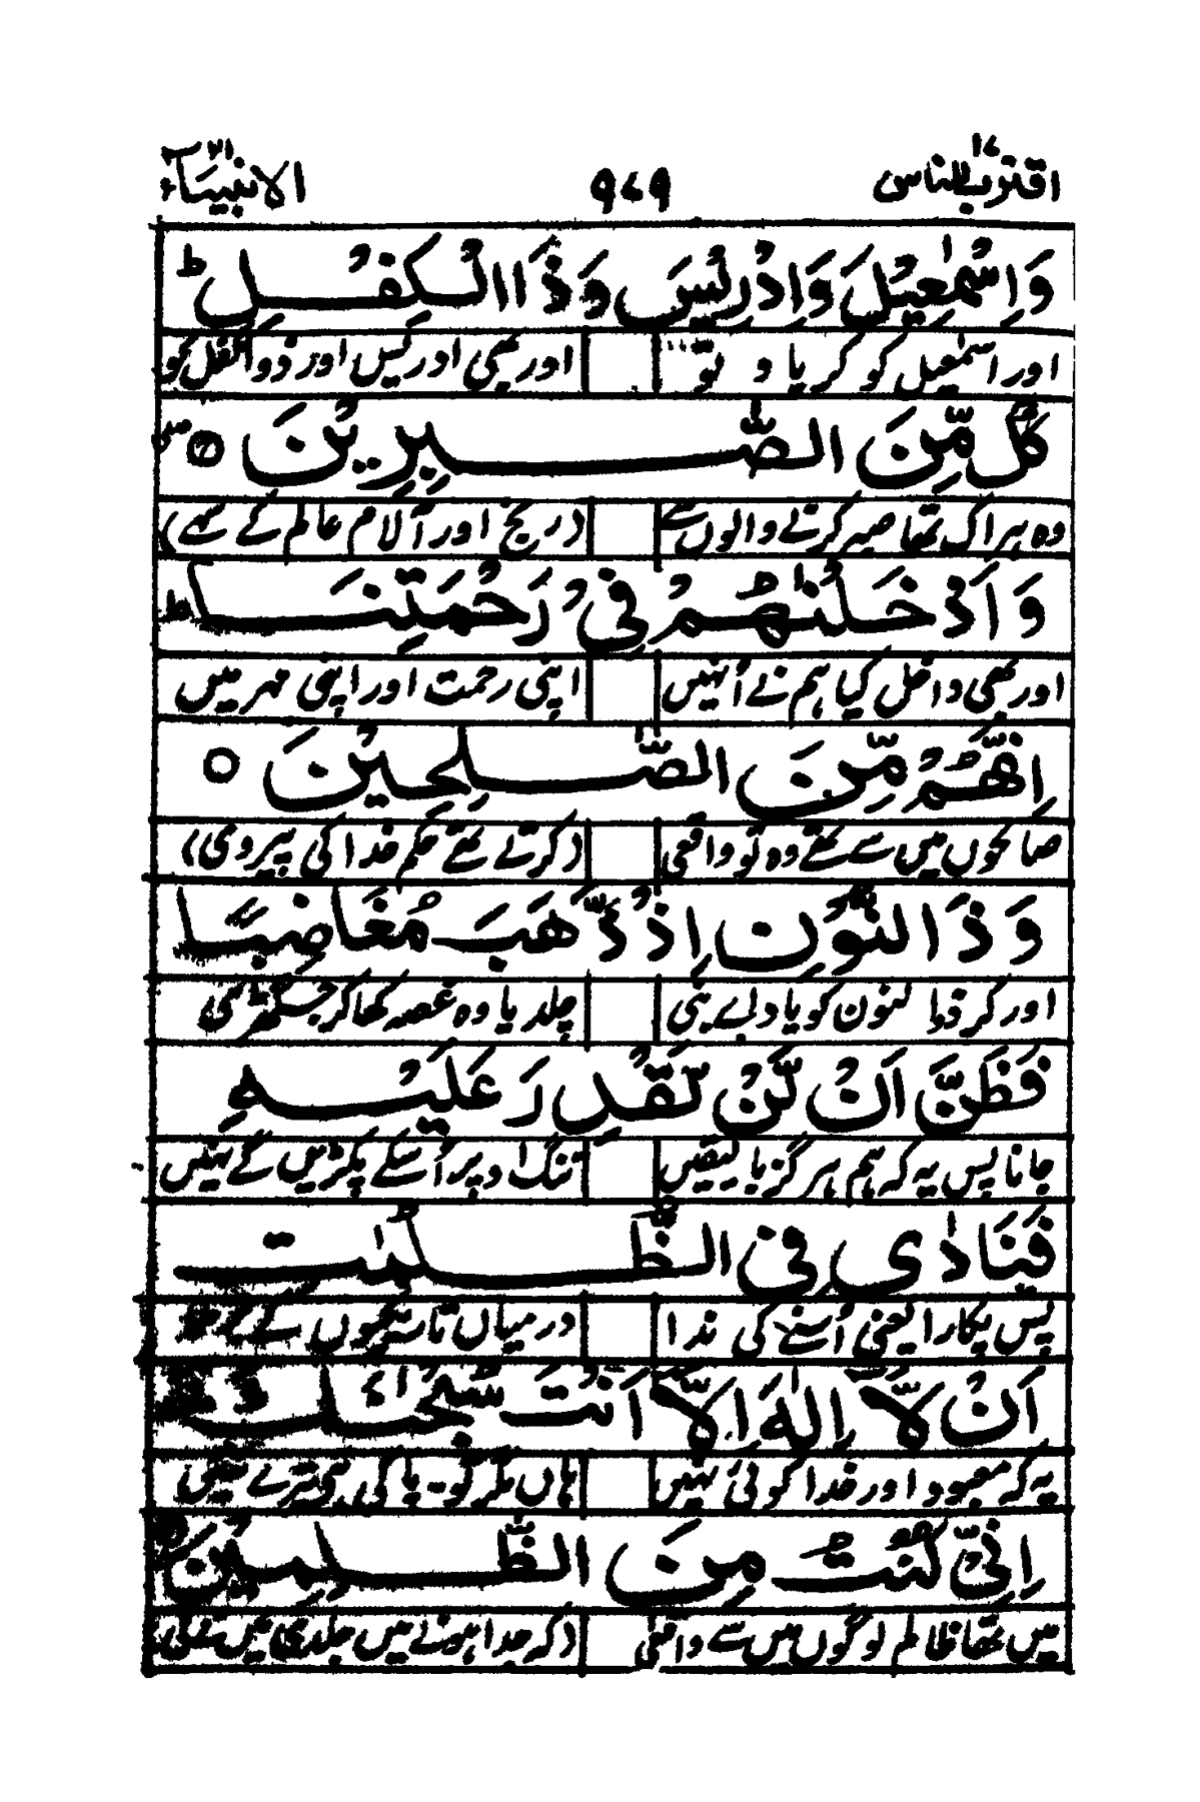 اقترب للناس ۱۷ ۹۷۹ الانبیآء ۲۱
وَاِسْمٰعِیْلَ وَاِدْرِیْسَ وَذَا الْکِفْلِ ؕ
اور اسمٰعیل کو کر یا د تو اور بھی ادریس اور ذوالکفل کو
کُلٌّ مِّنَ الصّٰبِرِیْنَ ○
وہ ہر اک تھا صبر کرنے والوں سے (رنج اور آلام عالم کے سہے)
وَاَدْخَلْنٰهُمْ فِیْ رَحْمَتِنَا ؕ
اور بھی داخل کیا ہم نے اُنہیں اپنی رحمت اور اپنی مہر میں
اِنَّهُمْ مِّنَ الصّٰلِحِیْنَ ○
صالحوں میں سے تھے وہ تو واقعی (کرتے تھے حکم خدا کی پیروی)
وَذَا النُّوْنِ اِذْ ذَّهَبَ مُغَاضِبًا
اور کر ذوا لنون کو یاد اے نبی چلدیا وہ غصہ کھا کر جس گھڑی
فَظَنَّ اَنْ لَّنْ نَّقْدِرَ عَلَیْهِ
جانا پس یہ کہ ہم ہرگز بالیقیں تنگ اوپر اُسکے پکڑیں گے نہیں
فَنَادٰی فِی الظُّلُمٰتِ
پس پکارا یعنی اُسنے کی ندا درمیاں تاریکیوں کے
اَنْ لَّاۤ اِلٰهَ اِلَّاۤ اَنْتَ سُبْحٰنَكَ
یہ کہ معبود اور خدا کوئی نہیں ہاں مگر تو۔ پاکی ہی تیرے تئیں
اِنِّیْ کُنْتُ مِنَ الظّٰلِمِیْنَ
میں تھا ظالم لوگوں میں سے واقعی (کہ جدا ہونے میں جلدی میں نے کی